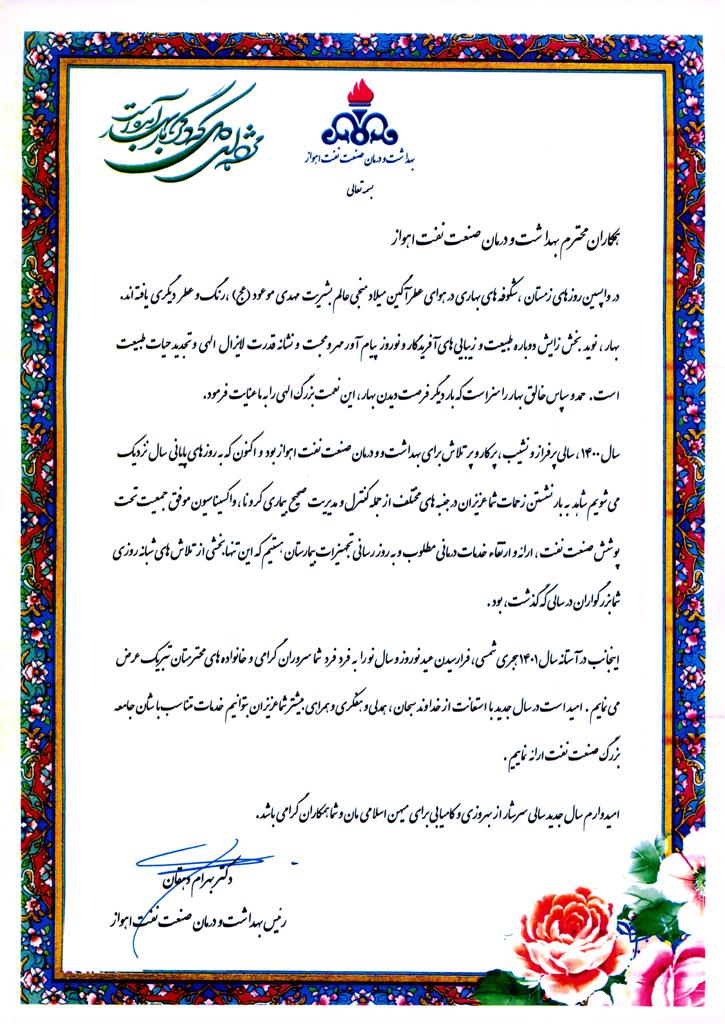 مژده ای دل که دگر باره بهار آمده است
بهداشت و درمان صنعت نفت اهواز
بسمه تعالی
همکاران محترم بهداشت و درمان صنعت نفت اهواز
در واپسین روزهای زمستان ، شکوفه های بهاری در هوای عطرآگین میلاد منجی عالم بشریت مهدی موعود (عج) ، رنگ و عطر دیگری یافته اند.
بهار ، نوید بخش زایش دوباره طبیعت و زیبایی های آفریدگار و نوروز پیام آور مهر و محبت و نشانه قدرت لایزال الهی و تجدید حیات طبیعت
است . حمد و سپاس خالق بهار را سزاست که بار دیگر فرصت دیدن بهار ، این نعمت بزرگ الهی را به ما عنایت فرمود.
سال ۱۴۰۰ ، سالی پر فراز و نشیب ، پرکار و پر تلاش برای بهداشت و و درمان صنعت نفت اهواز بود و اکنون که به روزهای پایانی سال نزدیک
می شویم شاهد به بار نشستن زحمات شما عزیزان در جنبه های مختلف از جمله کنترل و مدیریت صحیح بیماری کرونا ، واکسیناسون موفق جمعیت تحت
پوشش صنعت نفت ، ارائه و ارتقاء خدمات درمانی مطلوب و به روز رسانی تجهیزات بیمارستان هستیم که این تنها بخشی از تلاش های شبانه روزی
شما بزرگواران در سالی که گذشت ، بود .
اینجانب در آستانه سال ۱۴۰۱ هجری شمسی ، فرا رسیدن عید نوروز و سال نو را به فرد فرد شما سروران گرامی و خانواده های محترمتان تبریک عرض
می نمایم . امید است در سال جدید با استعانت از خداوند سبحان ، همدلی و همفکری و همراهی بیشتر شما عزیزان بتوانیم خدمات متناسب با شان جامعه
بزرگ صنعت نفت ارائه نماییم .
امیدوارم سال جدید سالی سرشار از بهروزی و کامیابی برای میهن اسلامی مان و شما همکاران گرامی باشد.
دکتر بهرام دهقان
رئیس بهداشت و درمان صنعت نفت اهواز